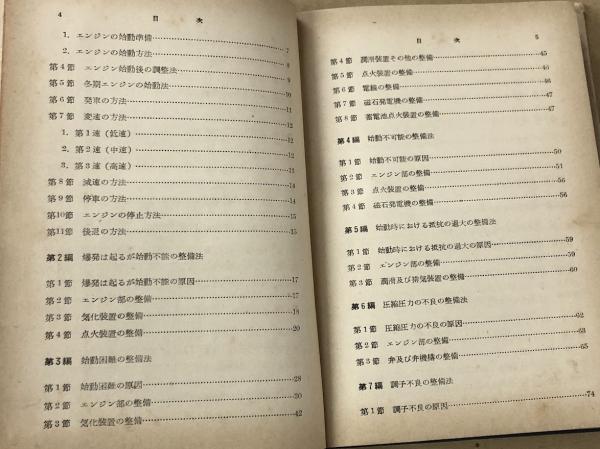 4 目次
1. エンジンの始動準備 7
2. エンジンの始動方法 8
第4節 エンジン始動後の調整法 9
第5節 冬期エンジンの始動法 10
第6節 発車の方法 11
第7節 変速の方法 12
1. 第1速(低速) 12
2. 第2速(中速) 12
3. 第3速(高速) 13
第8節 減速の方法 14
第9節 停車の方法 14
第10節 エンジンの停止方法 15
第11節 後退の方法 15
第2編 爆発は起るが始動不能の整備法
第1節 爆発は起るが始動不能の原因 17
第2節 エンジン部の整備 17
第3節 気化装置の整備 18
第4節 点火装置の整備 20
第3編 始動困難の整備法
第1節 始動困難の原因 28
第2節 エンジン部の整備 30
第3節 気化装置の整備 42
目次 5
第4節 潤滑装置その他の整備 45
第5節 点火装置の整備 46
第6節 電線の整備 46
第7節 磁石発電機の整備 47
第8節 蓄電池点火装置の整備 47
第4編 始動不可能の整備法
第1節 始動不可能の原因 50
第2節 エンジン部の整備 51
第3節 点火装置の整備 56
第4節 磁石発電機の整備 56
第5編 始動時における抵抗の過大の整備法
第1節 始動時における抵抗の過大の原因 59
第2節 エンジン部の整備 59
第3節 潤滑及び排気装置の整備 60
第6編 圧縮圧力の不良の整備法
第1節 圧縮圧力の不良の原因 62
第2節 エンジン部の整備 63
第3節 弁及び弁機構の整備 65
第7編 調子不良の整備法
第1節 調子不良の原因 74